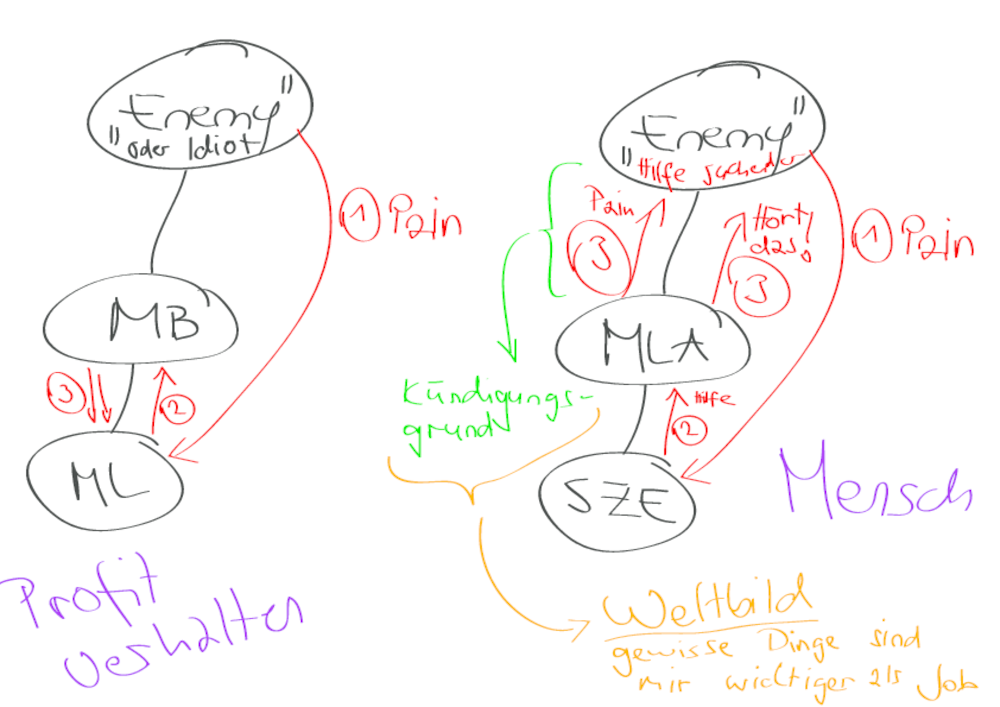 "Enemy"
oder Idiot
① Pain
MB
③
②
ML
Profit
verhalten
"Enemy"
Hilfe suchender
Pain
③
Hört
das!
③
① Pain
MLA
Kündigungs-
grund
② Hilfe
SZE
Mensch
Weltbild
gewisse Dinge sind
mir wichtiger als Job